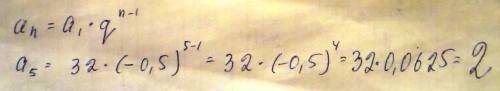 aₙ = a₁ · qⁿ⁻¹
a₅ = 32 · (-0,5)⁵⁻¹ = 32 · (-0,5)⁴ = 32 · 0,0625 = 2